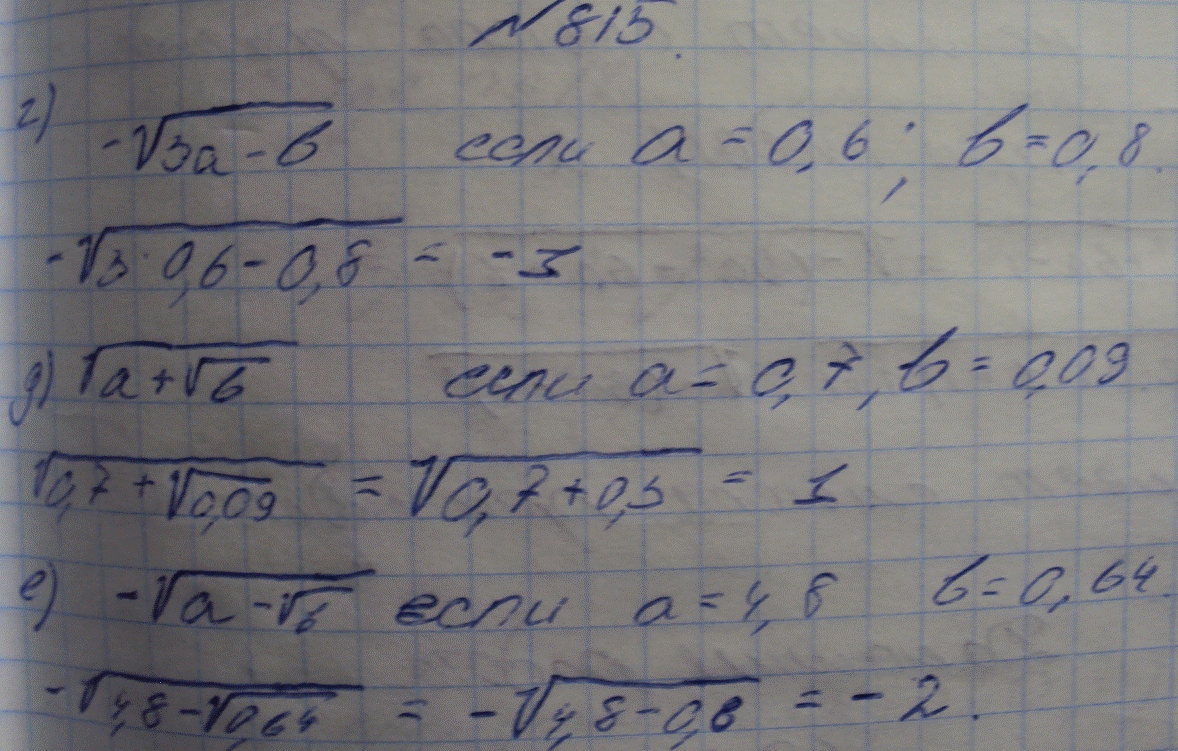 №815.
г) -√(3a - b) если a = 0,6; b = 0,8.
-√(3·0,6 - 0,8) = -1
д) √(a + √b) если a = 0,7, b = 0,09
√(0,7 + √0,09) = √(0,7 + 0,3) = 1
е) -√(a - √b) если a = 4,8 b = 0,64.
-√(4,8 - √0,64) = -√(4,8 - 0,8) = -2.